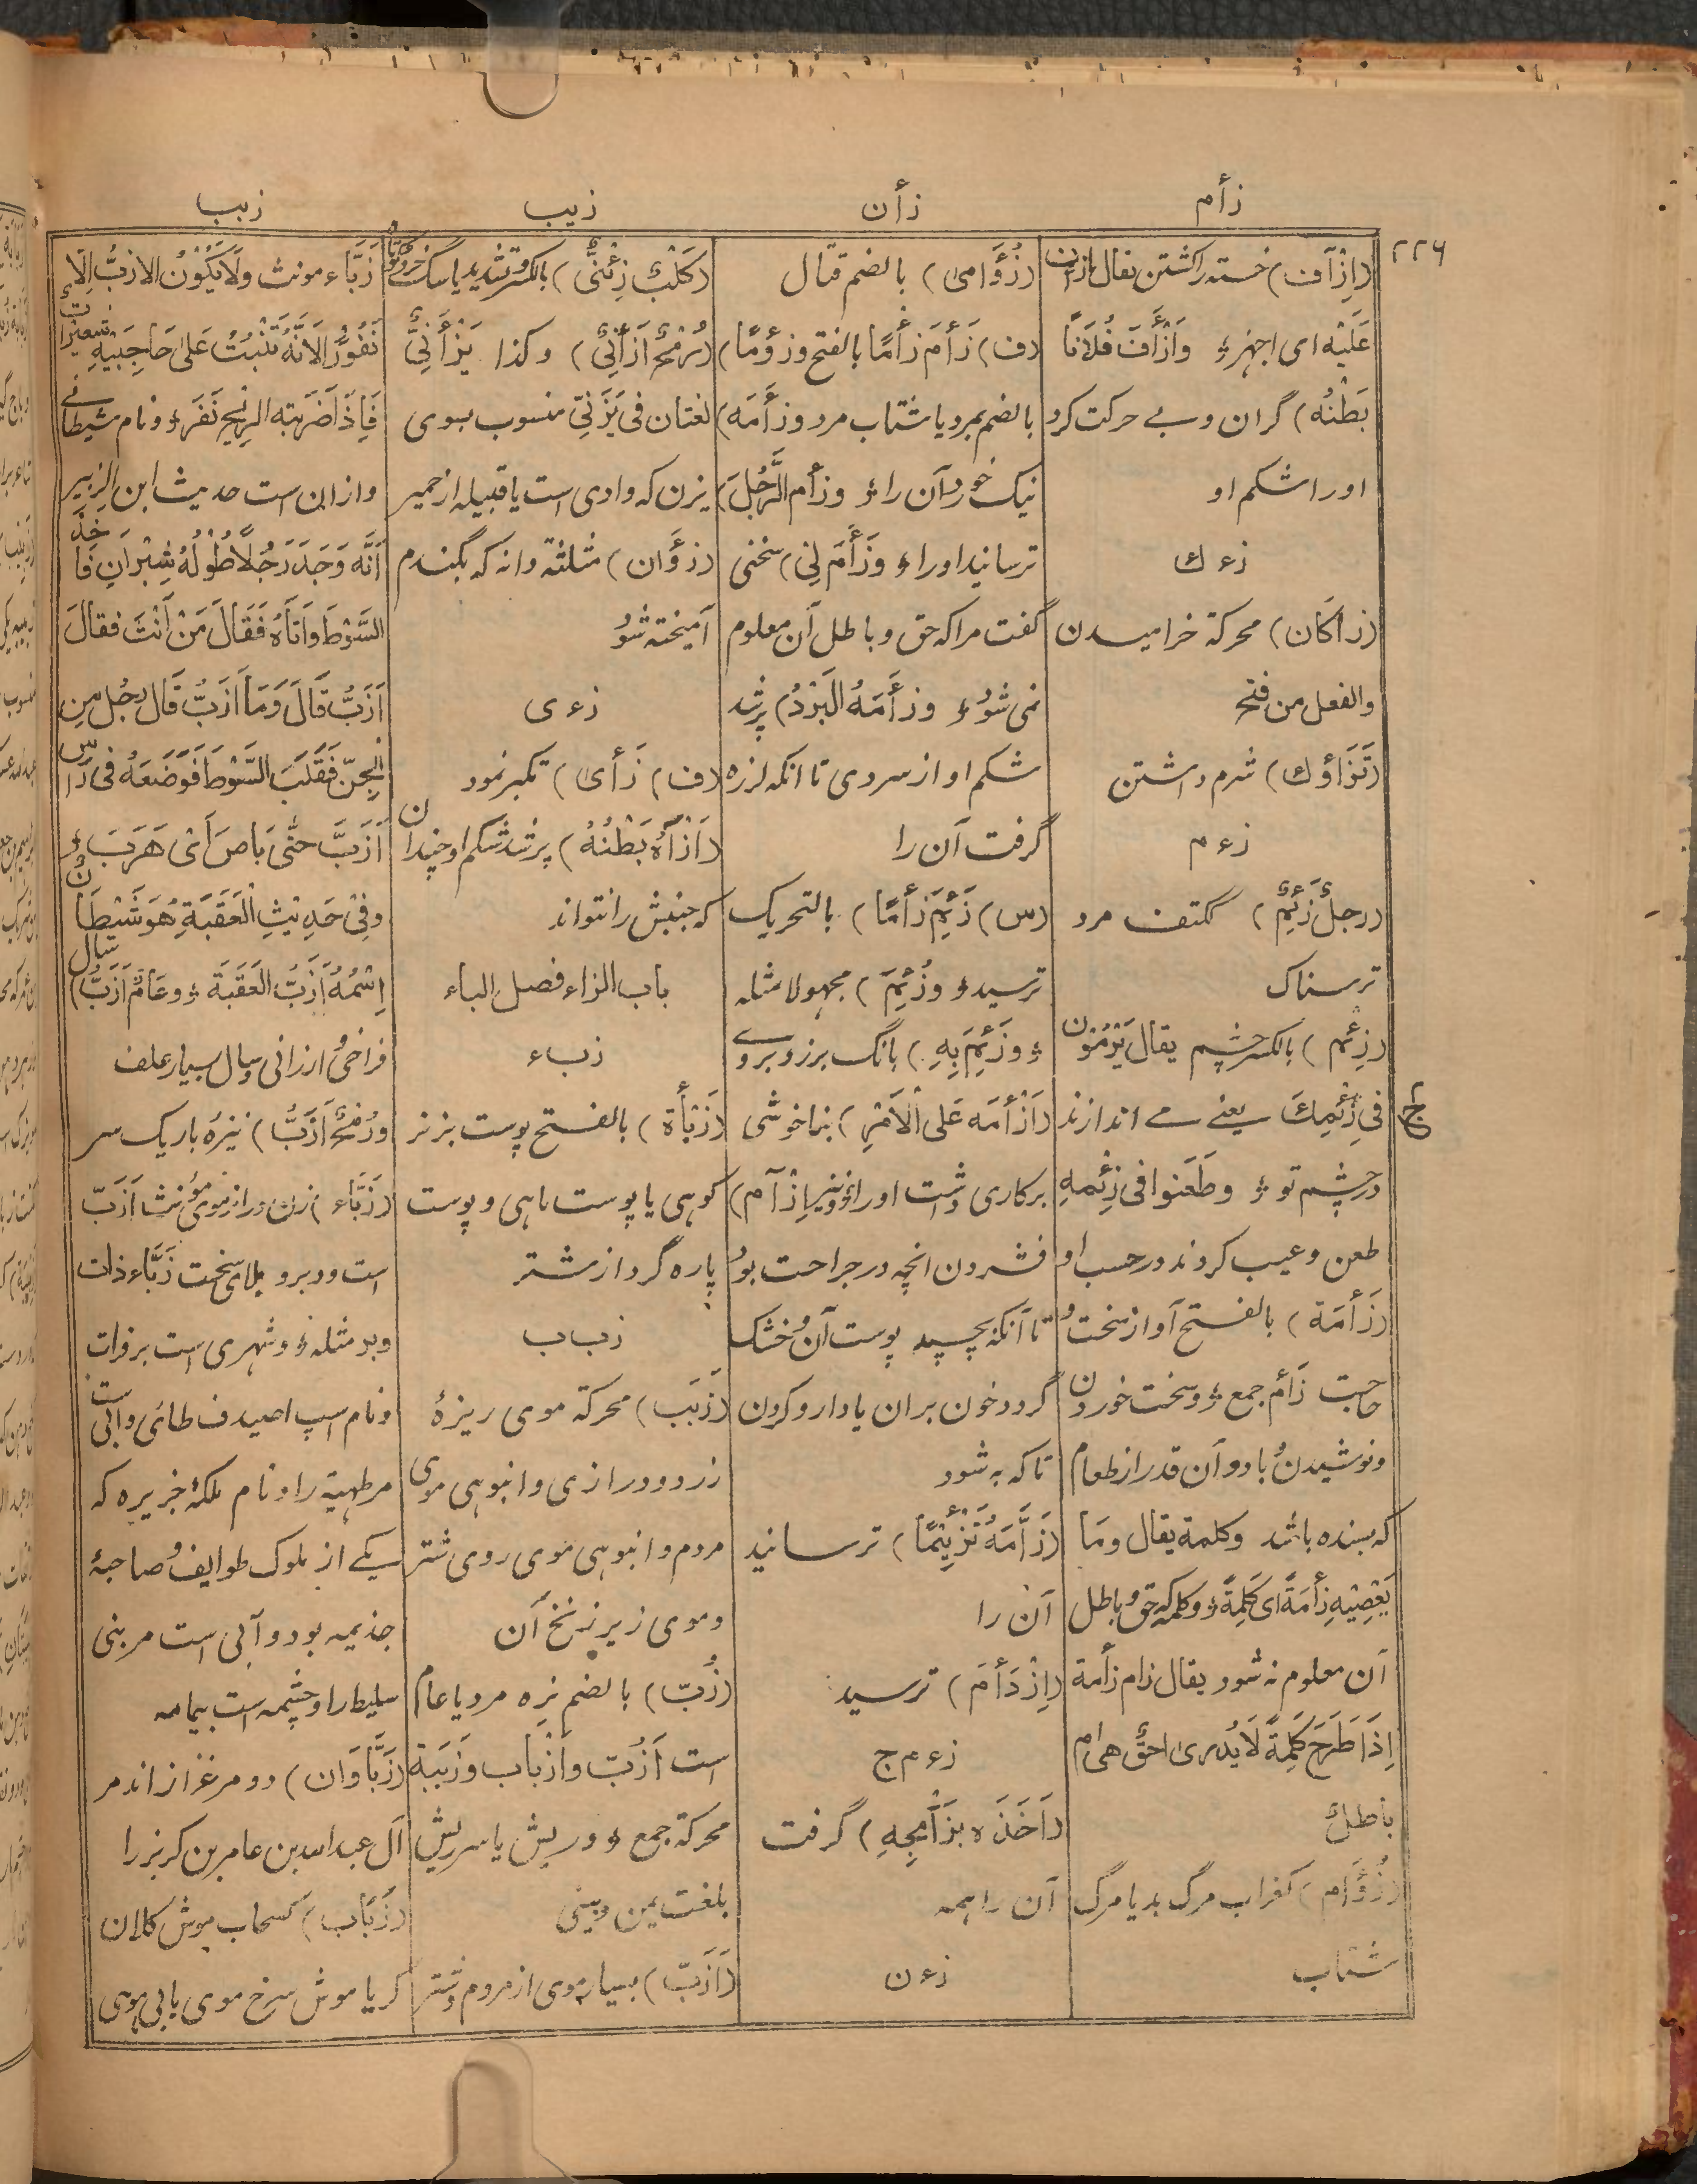 زأم
زأن
زیب
زبب
۲۲۶
(اِزْآف) خسته را کشتن یقال ازأف
عَلَیْه ای اجهز؛ وَاَزْأَفَ فُلَانًا
بَطْنُه) گران و بے حرکت کرد
او را شکم او
زءك
(زأکَان) محرکة خرامیدن
والفعل من فتح
(تَزَاؤك) شرم داشتن
زءم
(رجلٌ زَئِمٌ) ککتف مرد
ترسناک
(زِئْم) بالکسر چشم یقال یَرْمُوْن
فی زِئْمِكَ یعنے مے اندازند
در چشم تو؛ وطَعَنوا فی زِئْمِهِ
طعن و عیب کردند در حسب او
(زَأْمَة) بالفتح آواز سخت و
حاجت زَأْم جمع؛ و سخت خوردن
و نوشیدن و باد و آن قدر از طعام
که بسنده باشد وکلمة یقال ومَا
یَعْصِیْهِ زأمَةً ای کَلِمَةً؛ و کلمه که حق و باطل
آن معلوم نه شود یقال زام زأمة
اِذَا طَرَحَ کَلِمَةً لَا یُدری احقٌّ هی ام
باطلٌ
(زُؤَام) کغراب مرگ بد یا مرگ
شتاب
(زُؤَامی) بالضم قتال
(ف) زَأمَ زأمًا بالفتح وزؤمًا)
بالضم بمرد یا شتاب مرد وزأمَه)
نیک خورد آن را؛ وزأم الرَّجُلَ)
ترسانید او را؛ وَزَأَمَ لِی) سخنی
گفت مرا که حق و باطل آن معلوم
نمی شود؛ وزأَمَهُ البَرْدُ) پر شد
شکم او از سردی تا آنکه لرزه
گرفت آن را
(س) زَئِمَ زأمًا) بالتحریک
ترسید؛ وزُئِمَ) مجهولا مثله
؛ وزَئِمَ بِهِ) بانگ برزد بروے
(اَزْأمَه عَلی الْاَمْرِ) بناخوشی
برکاری داشت او را؛ ونیز اِزْآم)
فشردن انچه در جراحت بود
تا آنکه بچسپد پوست آن و خشک
گردد خون بران یا دارو کردن
تا که به شود
(زَأَّمَهُ تَزْئِیْمًا) ترسانید
آن را
(اِزْدَأمَ) ترسید
زءم ج
(اَخَذَه بزَأْمِجِهِ) گرفت
آن را همه
زءن
(کَلْبٌ زِئْنِیٌّ) بالکسر و تشدید یا سگ خرد کوتاه
(رُمْحٌ اَزْأَنِیٌّ) وکذا یَزْأَنِیٌّ
لغتان فی یَزَنِیّ منسوب بسوی
یزن که وادی است یا قبیله از حمیر
(زؤَان) مثلثة دانه که بگندم
آمیخته شود
زءی
(ف) زَأی) تکبر نمود
(اَزْآهُ بَطْنُهُ) پر شد شکم او چندان
که جنبش را نتواند
باب الزاء فصل الباء
زبء
(زَبْأَة) بالفتح پوست بز نر
کوهی یا پوست ماهی و پوست
پاره گرد از شتر
زبب
(زَبَب) محرکة موی ریزۀ
زرد و درازی و انبوهی موی
مردم و انبوهی موی روی شتر
و موی زیر زنخ آن
(زُبّ) بالضم نره مرد یا عام
است اَزُبّ واَزْبَاب وزَبَبَة
محرکة جمع؛ و ریش یا سر ریش
بلغت یمن و بینی
(اَزَبّ) بسیار موی از مردم و شتر
زَبَّاء مونث ولَا یَکُوْنُ الازبُّ اِلَّا
نَفُوْرًا لِاَنَّهُ تَنْبُتُ عَلیٰ حَاجِبَیْهِ شُعَیْرَات
فَاِذَا ضَرَبَتْه الرِّیْحُ نَفَرَ؛ و نام شیطانے
و ازان است حدیث ابن الزبیر
اَنَّه وَجَدَ رَجُلًا طُوْلُهُ شِبْرَانِ فَاَخَذَ
السَّوْطَ وَاَتَاهُ فَقَالَ مَنْ اَنْتَ فقالَ
اَزَبُّ قَالَ وَمَا اَزَبُّ قَالَ رجُل مِن
الجِنّ فَقَلَبَ السَّوْطَ فَوَضَعَهُ فی رَاسِ
اَزَبَّ حتّٰی بَاصَ اَیْ هَرَبَ؛
وفِیْ حَدِیْثِ الْعَقَبَةِ هُوَ شَیْطَانٌ
اِسْمُهُ اَزَبُّ العَقَبَة؛ و عَامٌ اَزَبُّ) سال
فراخی و ارزانی و سال بسیار علف
ورُمْحٌ اَزَبُّ) نیزه باریک سر
(زَبَّاء) زن دراز موی مؤنث اَزَبّ
است و دبر و بلای سخت زَبَّاء ذات
وبر مثله؛ و شهری است بر فرات
و نام اسپ اصیدف طائی و آبی ست
مر طهیة را و نام ملکۀ جزیره که
یکے از ملوک طوایف و صاحبۀ
جذیمه بود و آبی است مر بنی
سلیط را و چشمه است بیمامه
(زَبَّاوَان) دو مرغزار اند مر
آل عبدالله بن عامر بن کریز را
(زَبَاب) کسحاب موش کلان
کر یا موش سرخ موی یا بی موی
ج